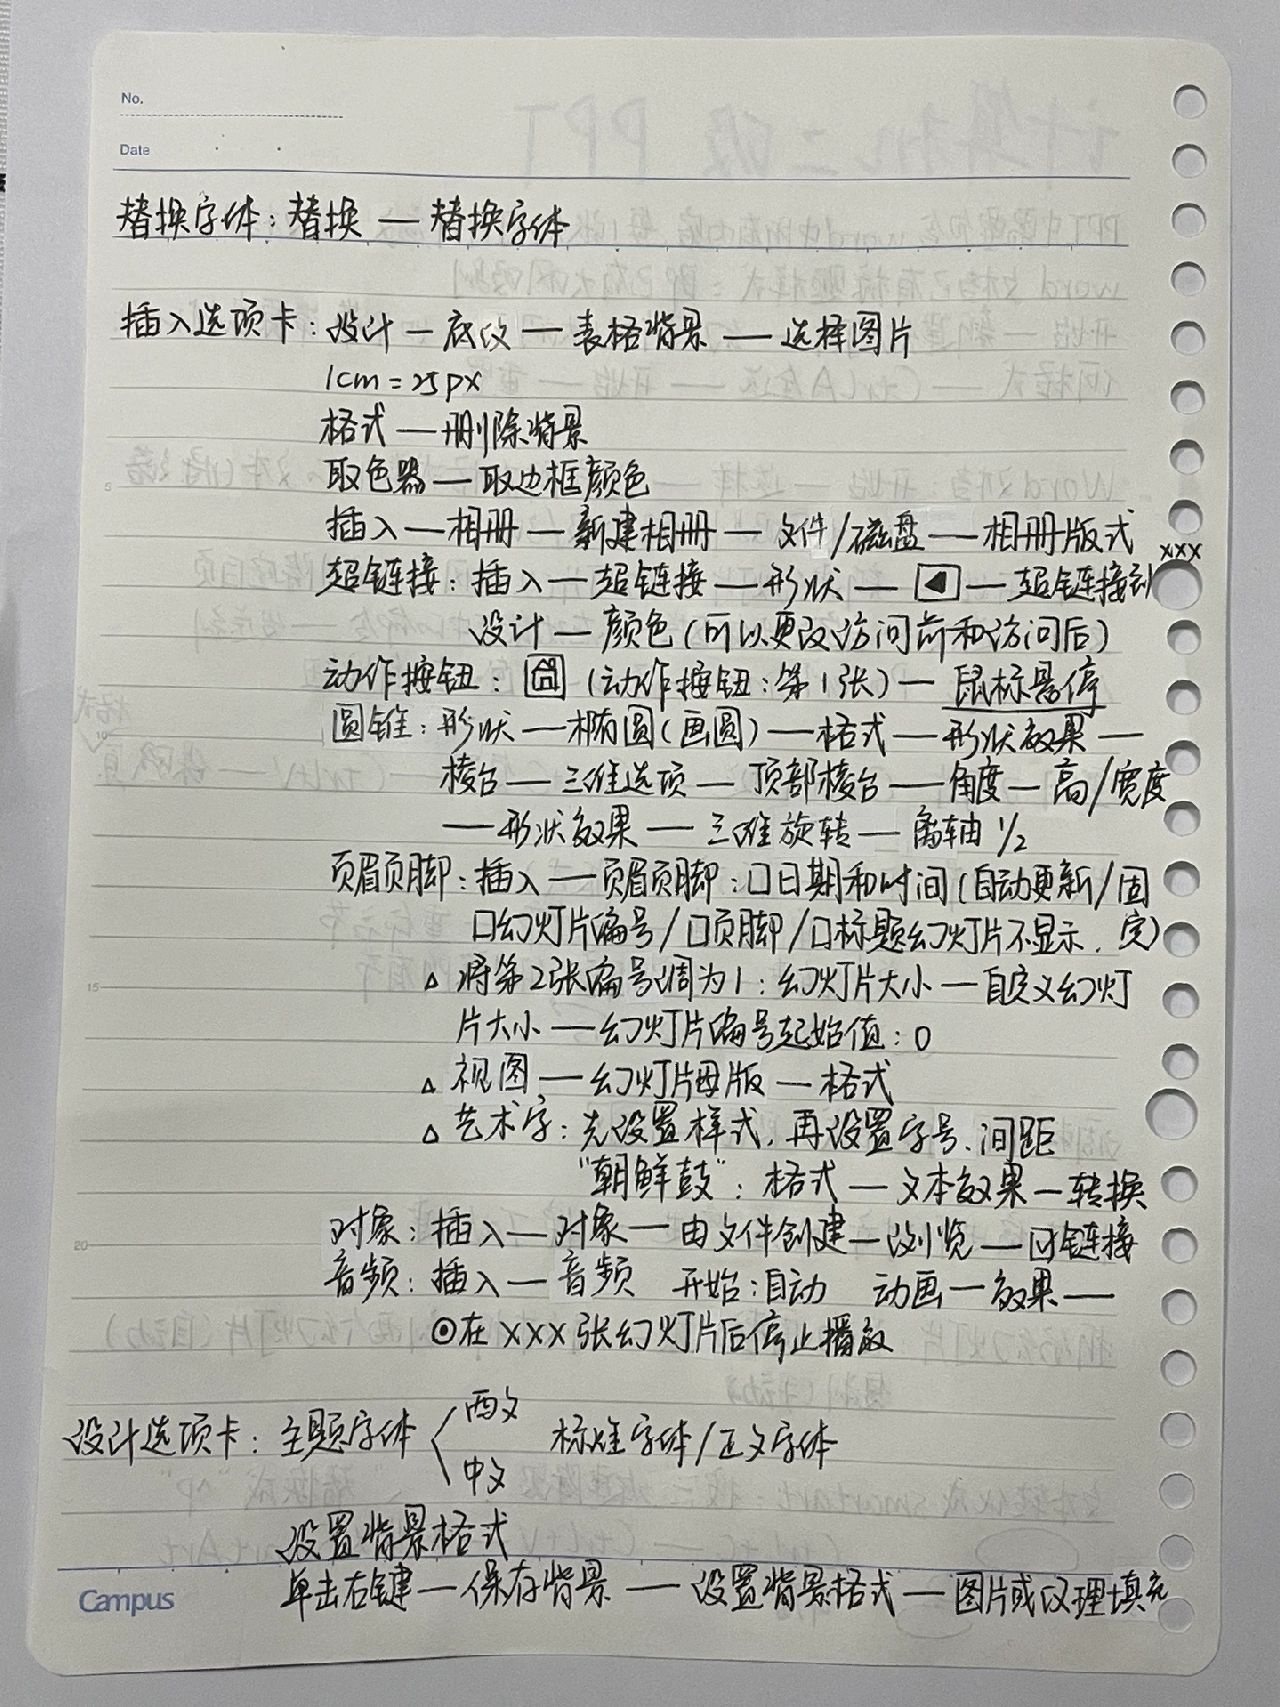 No.
Date
替换字体：替换 — 替换字体
插入选项卡：设计 — 底纹 — 表格背景 — 选择图片
1cm = 25px
格式 — 删除背景
取色器 — 取边框颜色
插入 — 相册 — 新建相册 — 文件/磁盘 — 相册版式
超链接：插入 — 超链接 — 形状 — ◀ — 超链接到xxx
设计 — 颜色(可以更改访问前和访问后)
动作按钮：(动作按钮：第1张) — 鼠标悬停
圆锥：形状 — 椭圆(画圆) — 格式 — 形状效果 —
棱台 — 三维选项 — 顶部棱台 — 角度 — 高/宽度
— 形状效果 — 三维旋转 — 离轴 1/2
页眉页脚：插入 — 页眉页脚：□日期和时间(自动更新/固定)
□幻灯片编号/□页脚/□标题幻灯片不显示.
△ 将第2张编号调为1：幻灯片大小 — 自定义幻灯
片大小 — 幻灯片编号起始值：0
△ 视图 — 幻灯片母版 — 格式
△ 艺术字：先设置样式，再设置字号、间距
"朝鲜鼓"：格式 — 文本效果 — 转换
对象：插入 — 对象 — 由文件创建 — 浏览 — ☑链接
音频：插入 — 音频 开始：自动 动画 — 效果 —
⊙在xxx张幻灯片后停止播放
设计选项卡：主题字体 西文 标准字体/正文字体
中文
设置背景格式
单击右键 — 保存背景 — 设置背景格式 — 图片或纹理填充
Campus
5
10
15
20